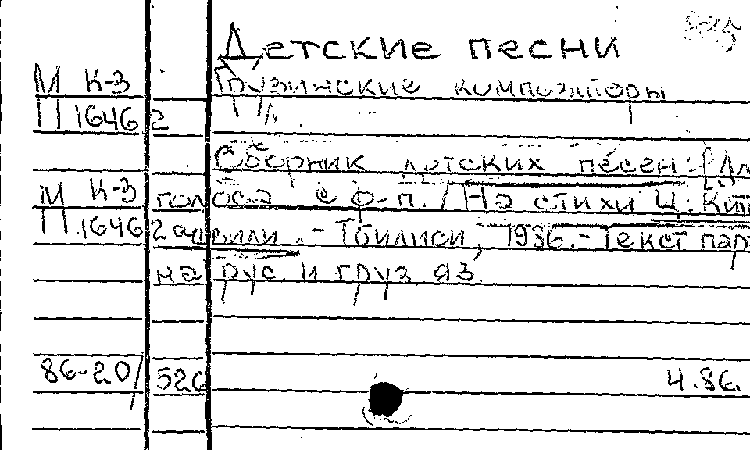 Детские песни
М К-3 Грузинские композиторы
П 1646 2
Сборник детских песен: [Дл
М К-3 голоса с ф-п. / На стихи Ц. Кит
П 1646 2 . - Тбилиси, 1986. - Текст пар
на рус и груз яз.
86-20/ 526 4.86.